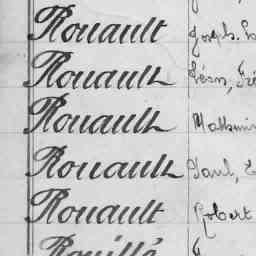 Rouault Joseph
Rouault Léon
Rouault Mathurin
Rouault Paul
Rouault Robert
Rouillé